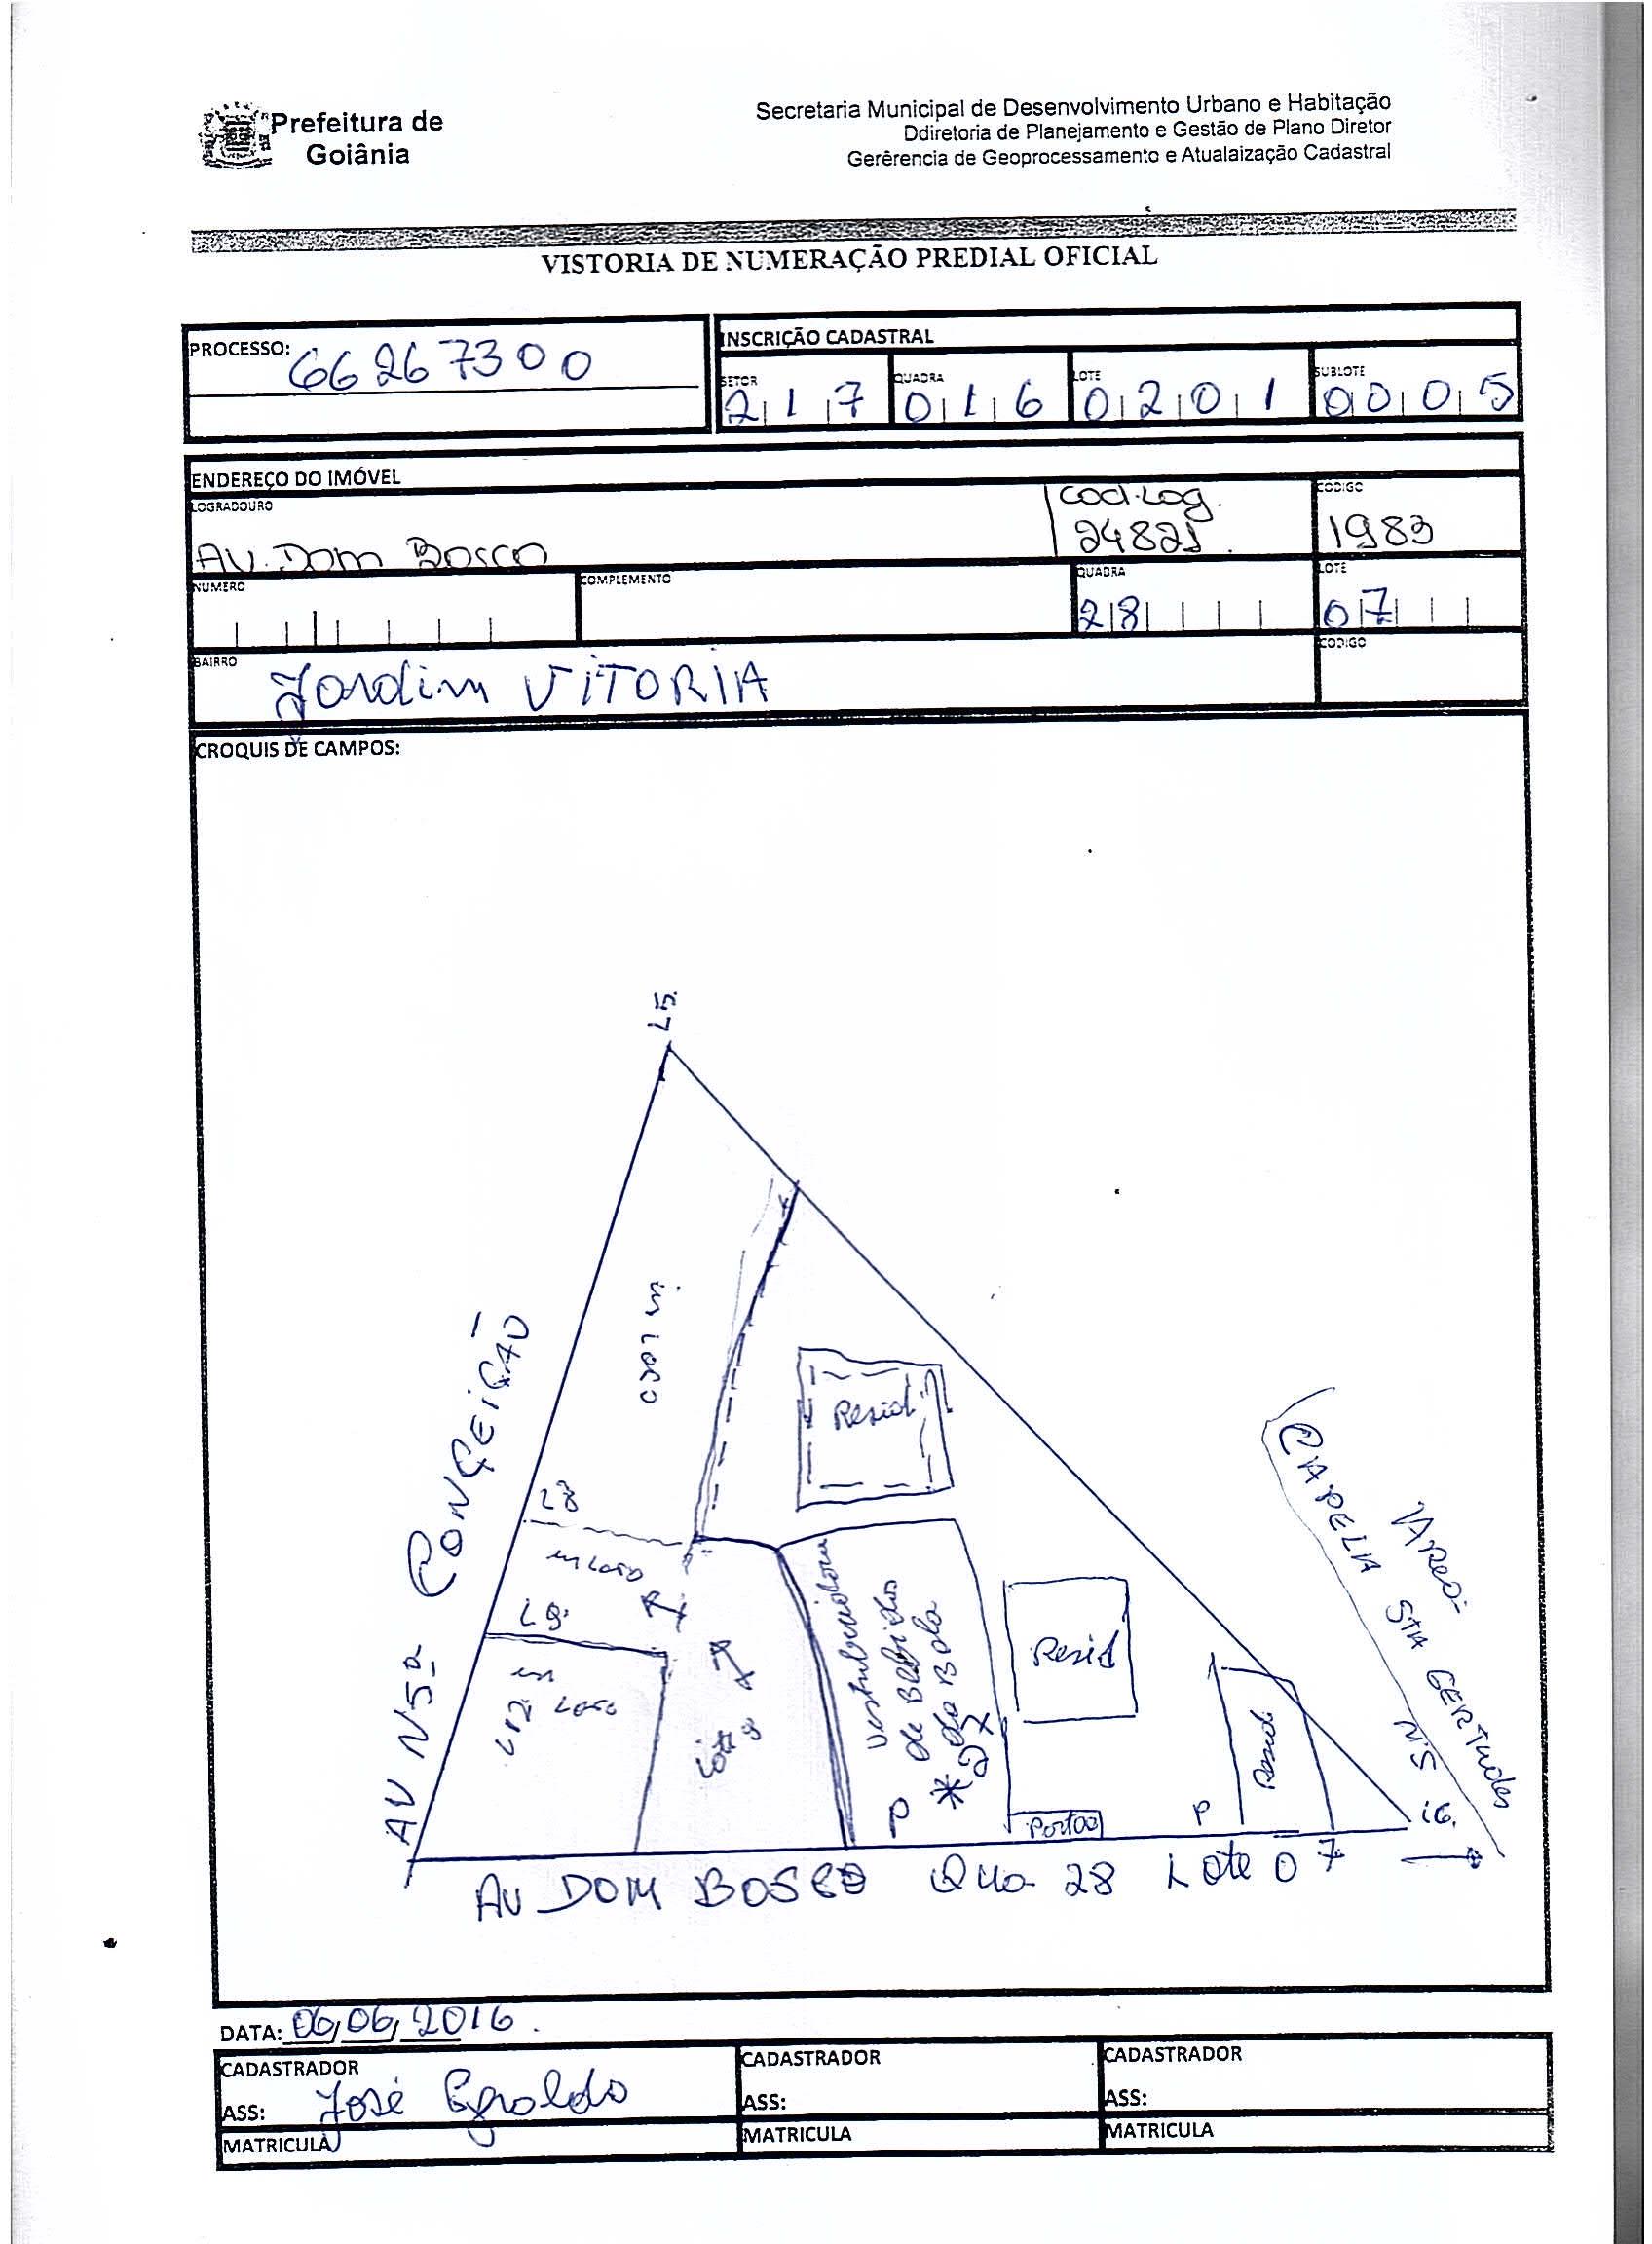 Prefeitura de
Goiânia
Secretaria Municipal de Desenvolvimento Urbano e Habitação
Ddiretoria de Planejamento e Gestão de Plano Diretor
Gerêrencia de Geoprocessamento e Atualaização Cadastral
VISTORIA DE NUMERAÇÃO PREDIAL OFICIAL
PROCESSO: 66267300
INSCRIÇÃO CADASTRAL
SETOR QUADRA LOTE SUBLOTE
217 016 0201 0005
ENDEREÇO DO IMÓVEL
LOGRADOURO
Cod.Log. CODIGO
AV. Dom Bosco 24821 1983
NUMERO COMPLEMENTO QUADRA LOTE
28 07
BAIRRO Jardim VITORIA CODIGO
CROQUIS DE CAMPOS:
L5.
in loco
Resid
AV NSª CONÇEIÇÃO
L8
in Loco
L9.
in
L12 Loco
Lote 8
de Bebidas
da Bola
* 297
P
Resid
Portao
P
Resid
CAPELA STA GERTUDES
N'S iG.
AV DOM BOSCO Qua 28 Lote 07
DATA: 06/06/2016.
CADASTRADOR CADASTRADOR CADASTRADOR
ASS: José ASS: ASS:
MATRICULA MATRICULA MATRICULA